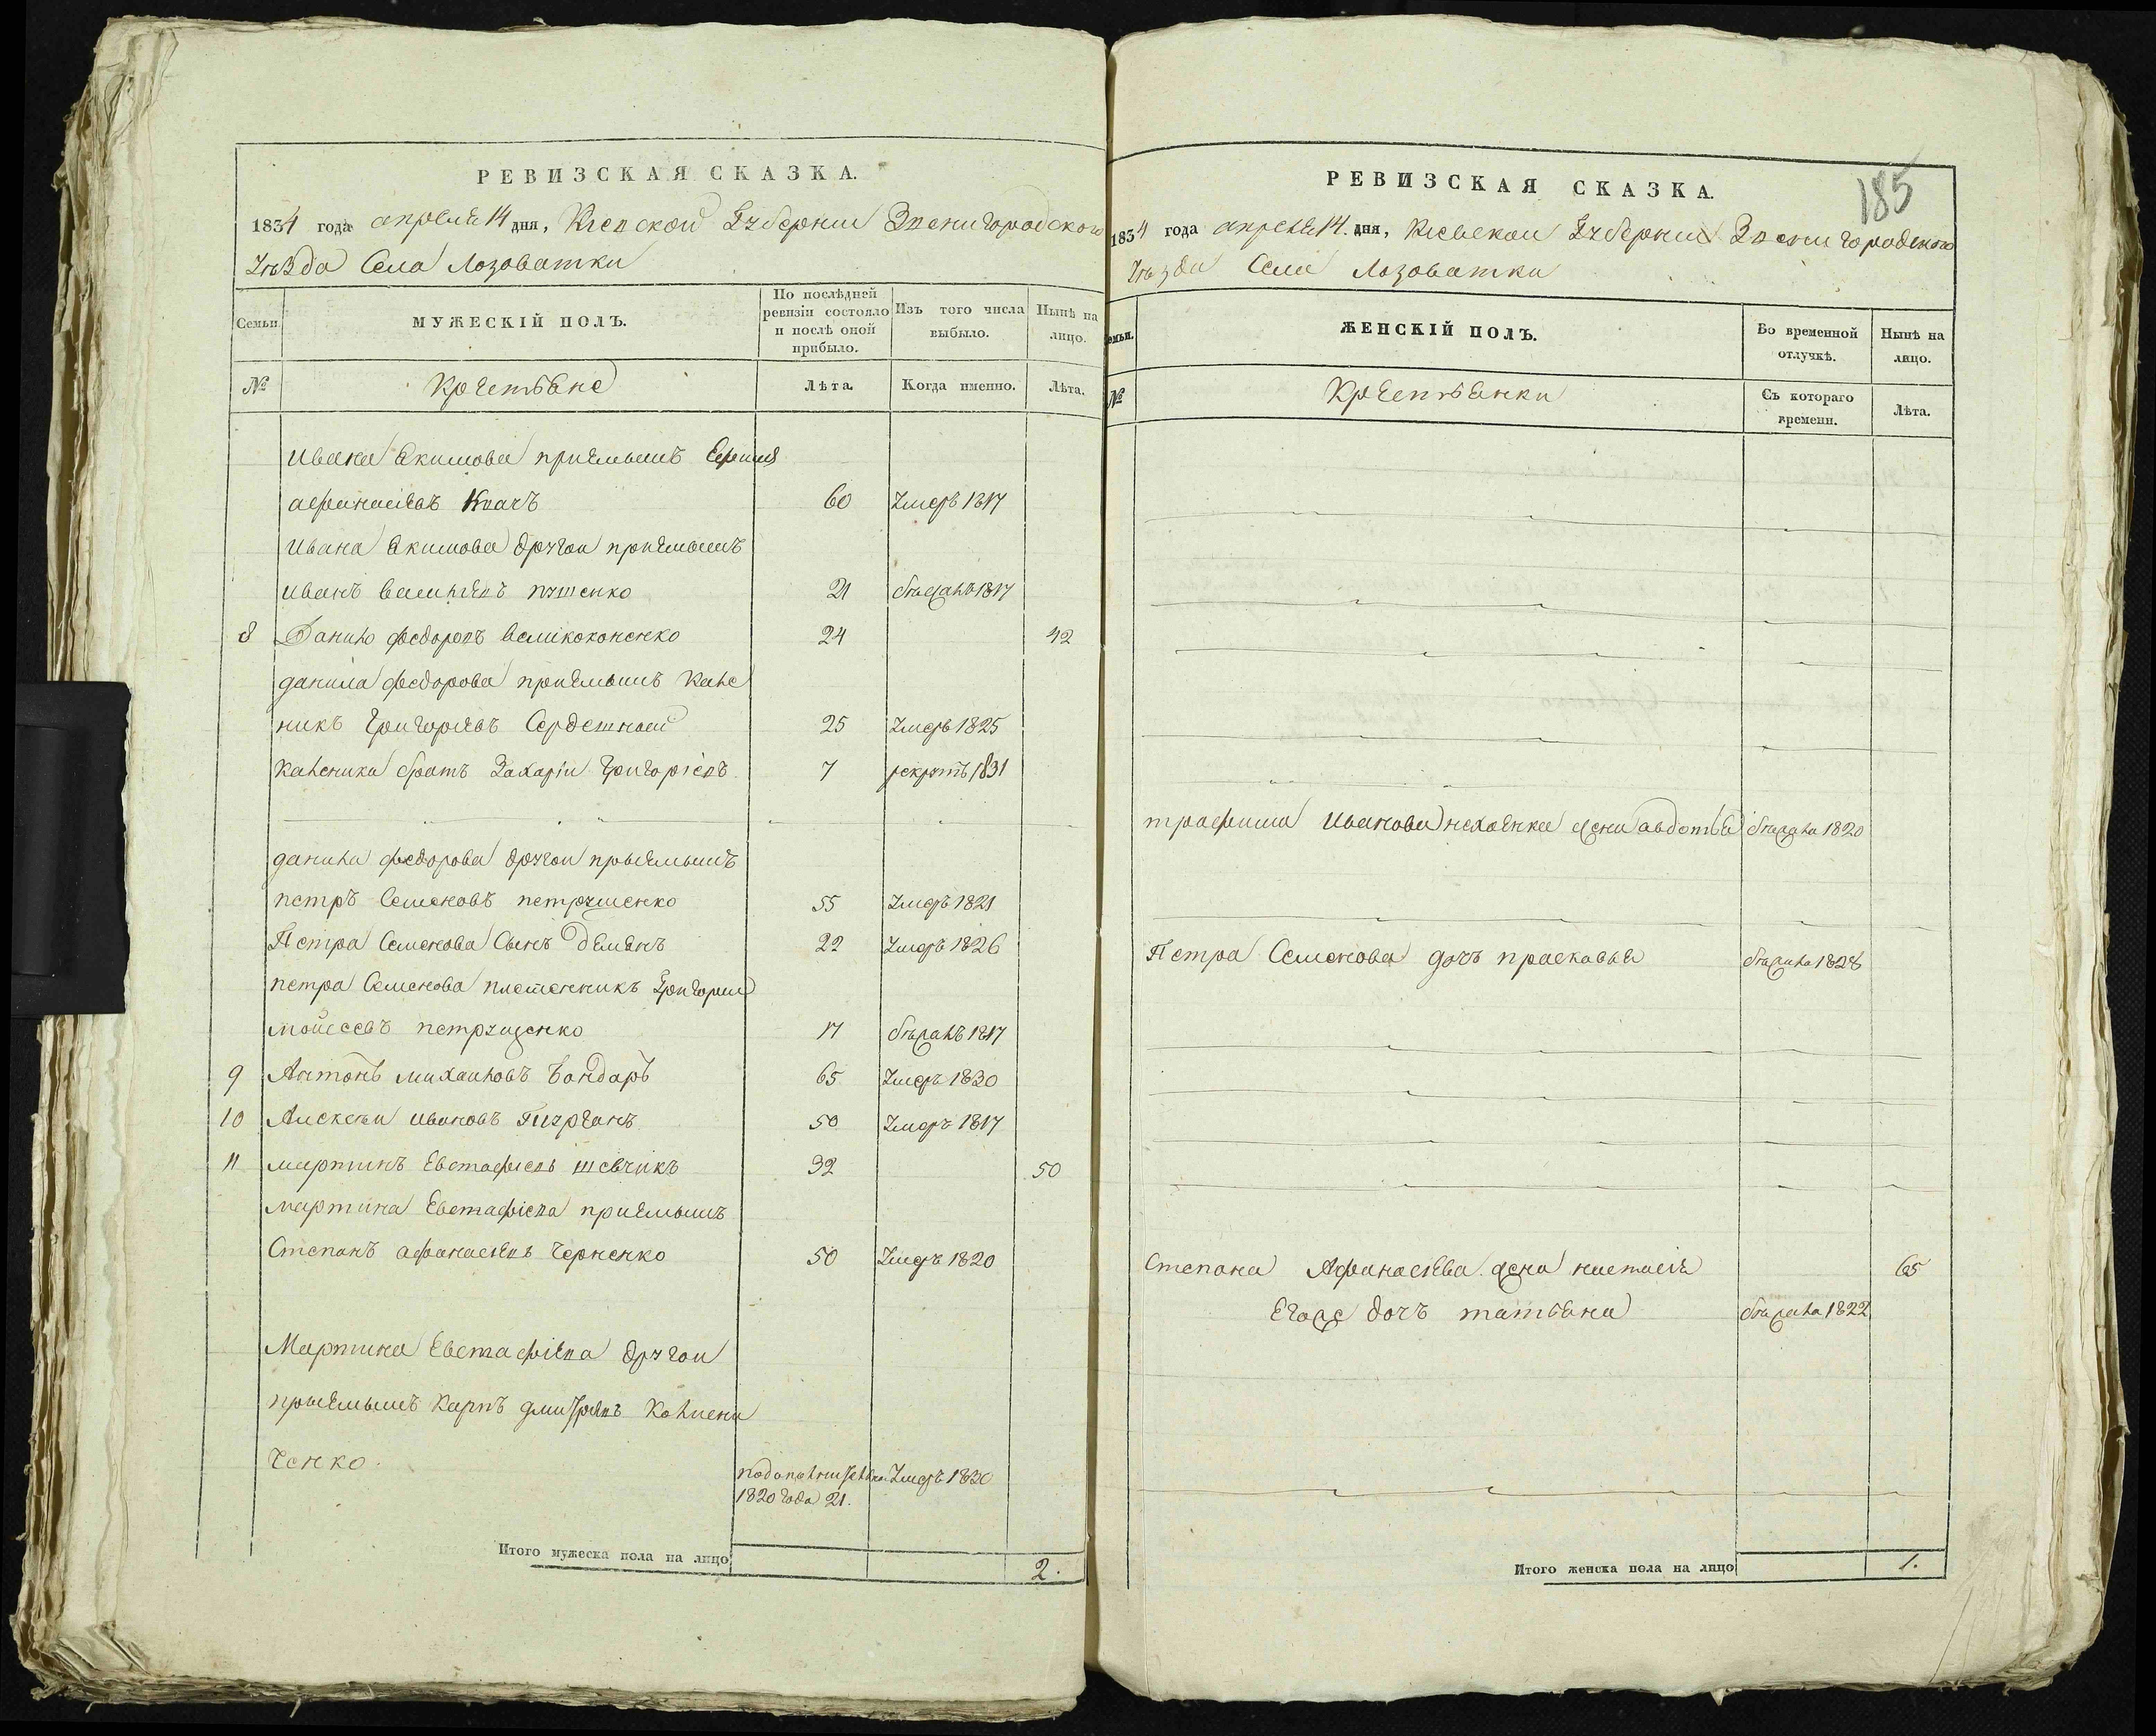 РЕВИЗСКАЯ СКАЗКА.
1834 года апреля 14 дня, Киевской Губернии Звенигородского
Уѣзда Села Лозоватки
Семьи.
МУЖЕСКІЙ ПОЛЪ.
По послѣдней ревизіи состояло и послѣ оной прибыло.
Изъ того числа выбыло.
Нынѣ на лицо.
№
Крестьяне
Лѣта.
Когда именно.
Лѣта.
Ивана Якимова приямышъ
афанасіевъ Квачъ 60 Умеръ 1817
Ивана Якимова другой приямышъ
иванъ васильевъ 21 бѣжалъ 1817
8 Данило федоровъ великоконенко 24 42
данила федорова приямышъ Кале
никъ Григорьевъ Сердешный 25 Умеръ 1825
Каленика братъ Захарій Григоріевъ 7 рекрутъ 1831
данила федорова другой приямышъ
петръ Семеновъ петрушенко 55 Умеръ 1821
Петра Семенова Сынъ демянъ 22 Умеръ 1826
петра Семенова племенникъ Григорий
мойсеевъ петрущенко 17 бѣжалъ 1817
9 Антонъ михайловъ бондаръ 65 Умеръ 1830
10 Алексѣй ивановъ 50 Умеръ 1817
11 мартинъ Евстафіевъ шевчикъ 32 50
мартина Евстафіева приямышъ
Степанъ афанасіевъ Черненко 50 Умеръ 1820
Мартина Евстафіева другой
приямышъ Карпъ дмитріевъ Колисни
ченко.
Умеръ 1830
1820 года 21.
Итого мужеска пола на лицо 2.
185
РЕВИЗСКАЯ СКАЗКА.
1834 года апреля 14. дня, Киевской Губернии Звенигородского
Уѣзда Села Лозоватки
Семьи.
ЖЕНСКІЙ ПОЛЪ.
Во временной отлучкѣ.
Нынѣ на лицо.
№
Крестьянки
Съ котораго времени.
Лѣта.
Иванова жена авдотья бѣжала 1820
Петра Семенова дочъ прасковья бѣжала 1828
Степана Афанасіева жена настасія 65
Егоже дочъ татьяна бѣжала 1822
Итого женска пола на лицо 1.